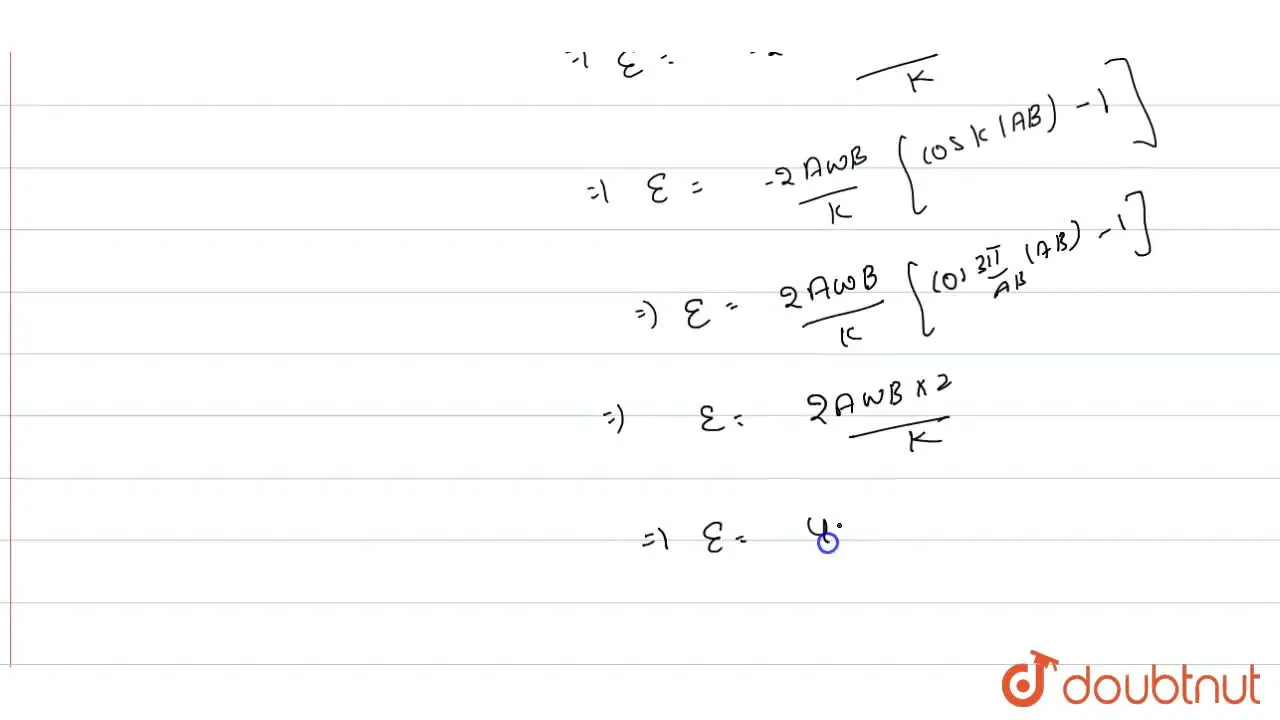 =) ε = -2 / K
=) ε = -2AωB / K [cos K (AB) - 1]
=) ε = 2AωB / K [cos 3π / AB (AB) - 1]
=) ε = 2AωB × 2 / K
=) ε = 4
doubtnut